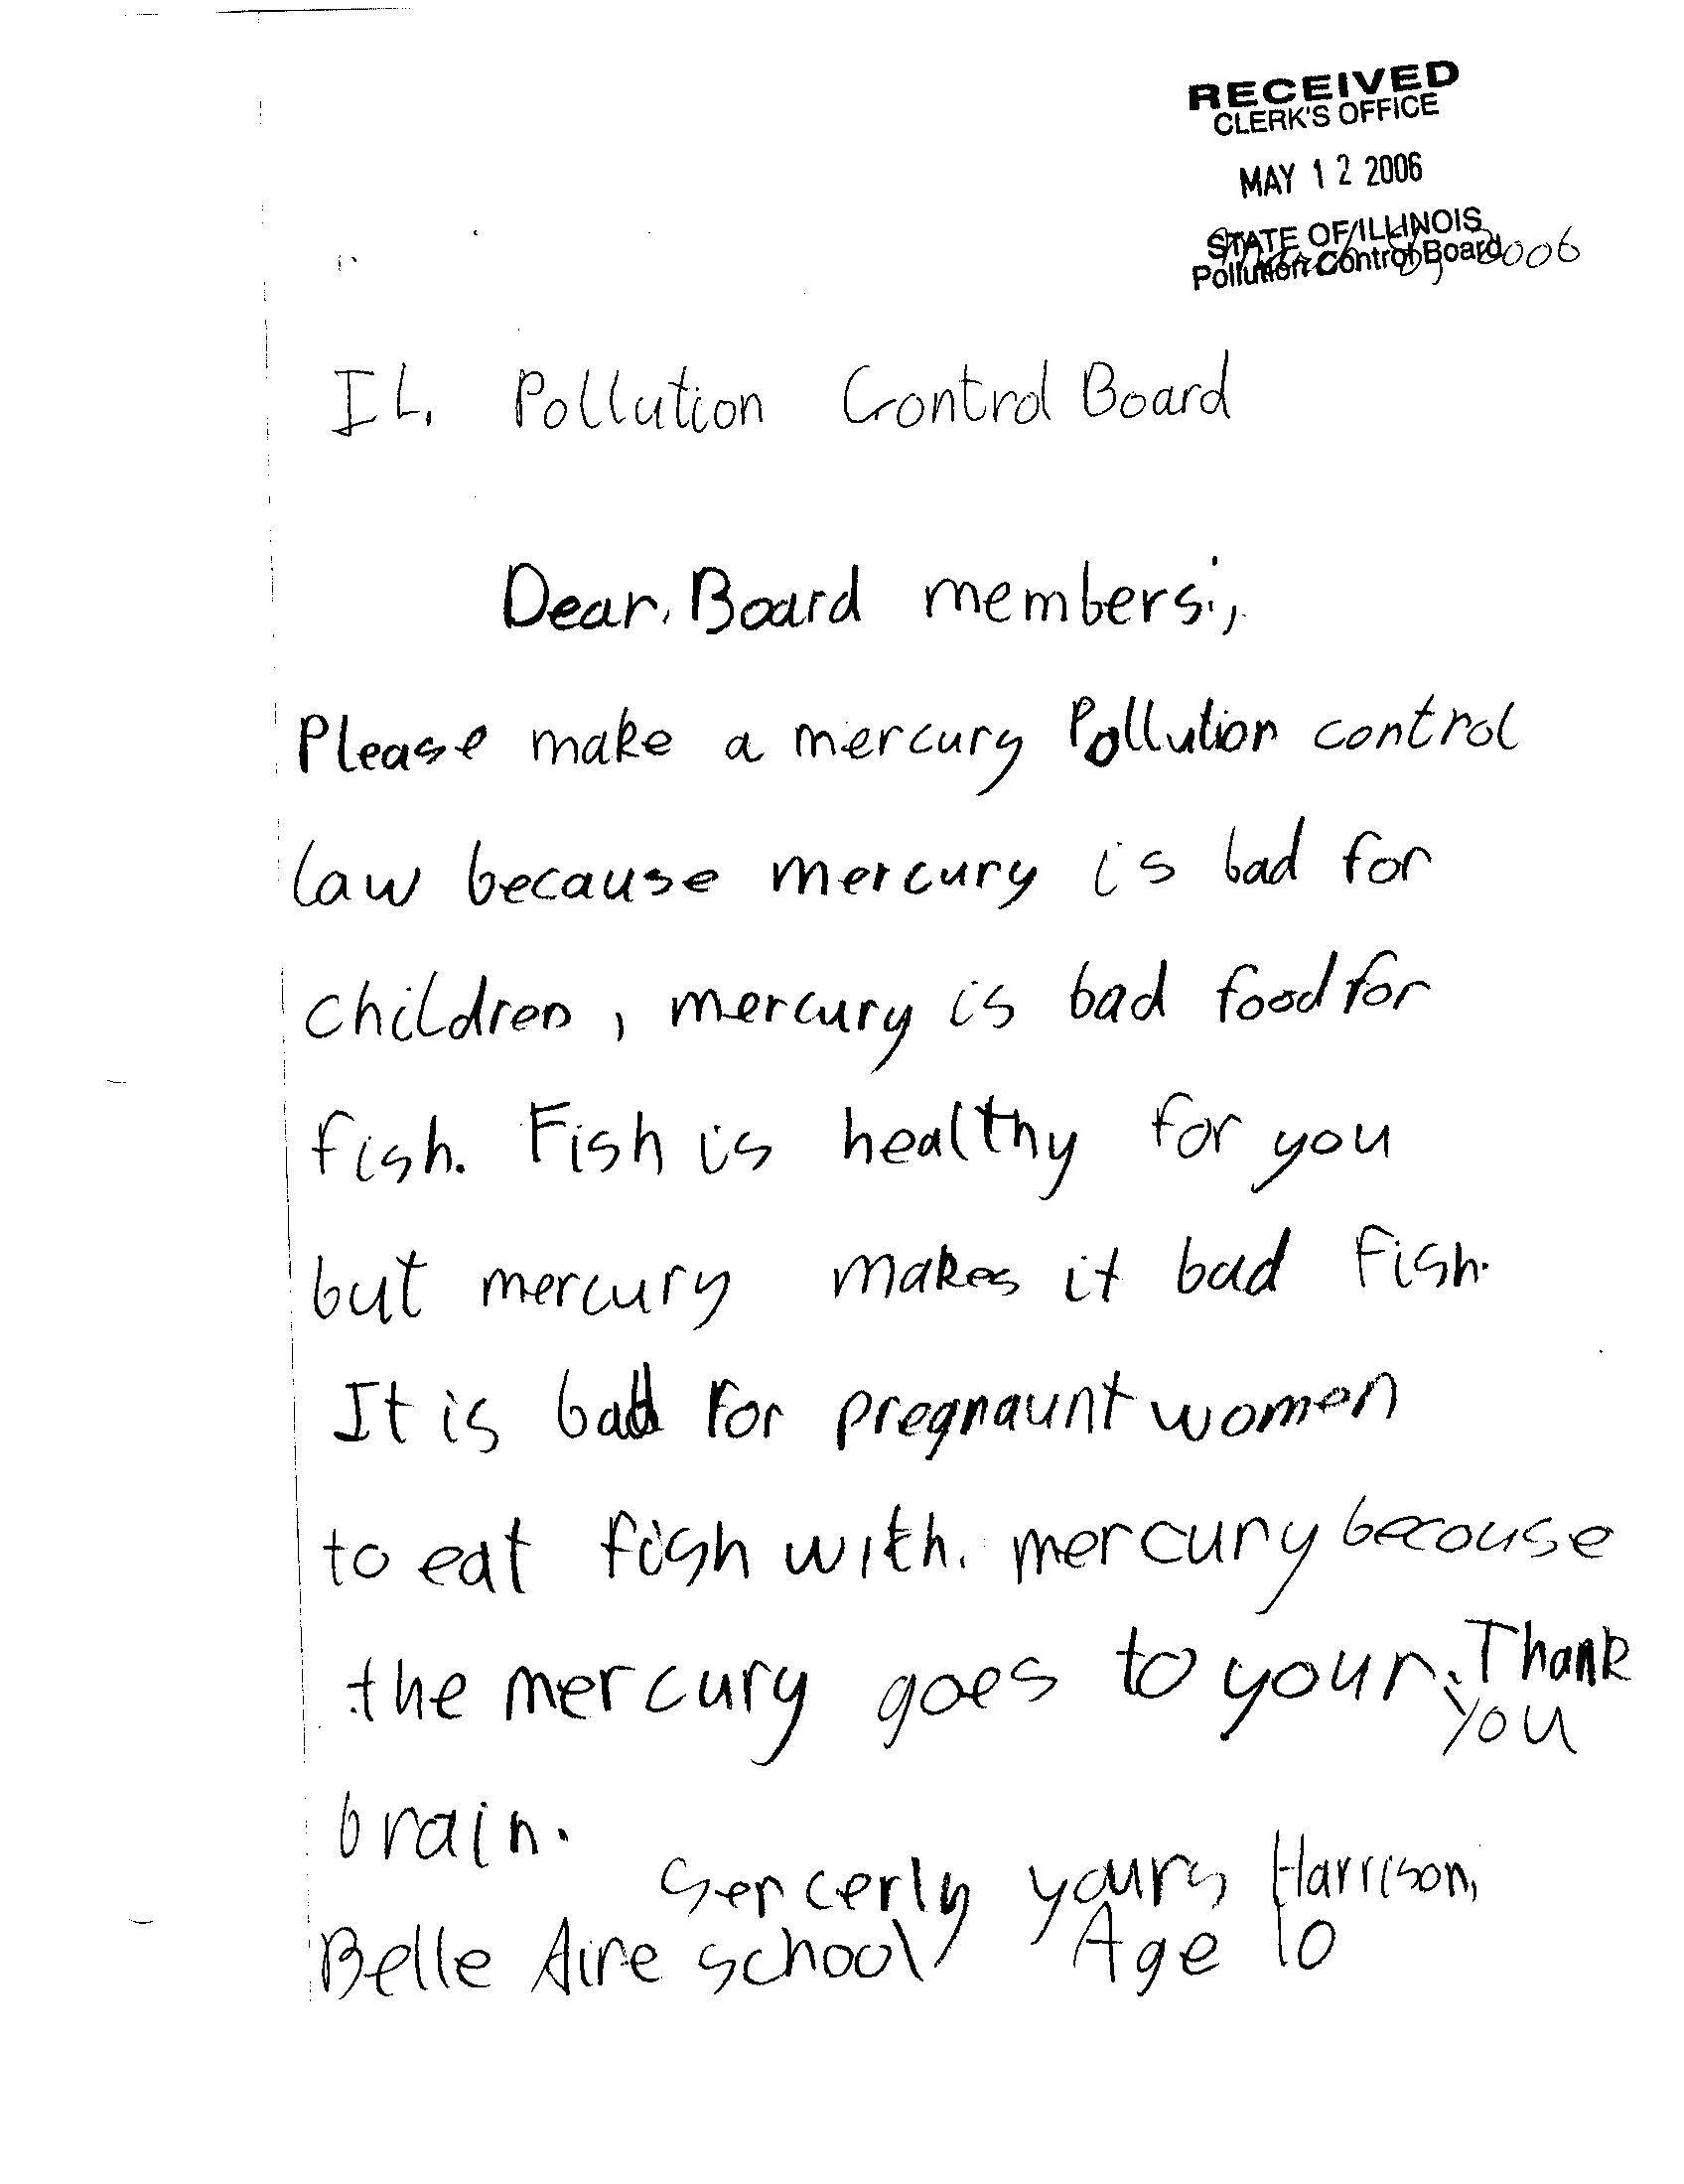 RECEIVED
CLERK'S OFFICE
MAY 12 2006
STATE OF ILLINOIS
Pollution Control Board
8, 2006
IL. Pollution Control Board
Dear, Board members:,
Please make a mercury Pollution control
law because mercury is bad for
children, mercury is bad food for
fish. Fish is healthy for you
but mercury makes it bad fish.
It is bad for pregnaunt women
to eat fish with. mercury becouse
the mercury goes to your. Thank
you
brain.
Sercerly yours Harrison,
Belle Aire school Age 10